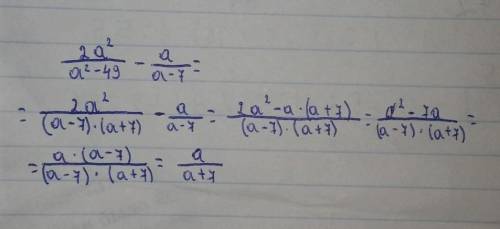 2a²/(a²-49) - a/(a-7) =
= 2a²/((a-7)·(a+7)) - a/(a-7) = (2a²-a·(a+7))/((a-7)·(a+7)) = (a²-7a)/((a-7)·(a+7)) =
= (a·(a-7))/((a-7)·(a+7)) = a/(a+7)